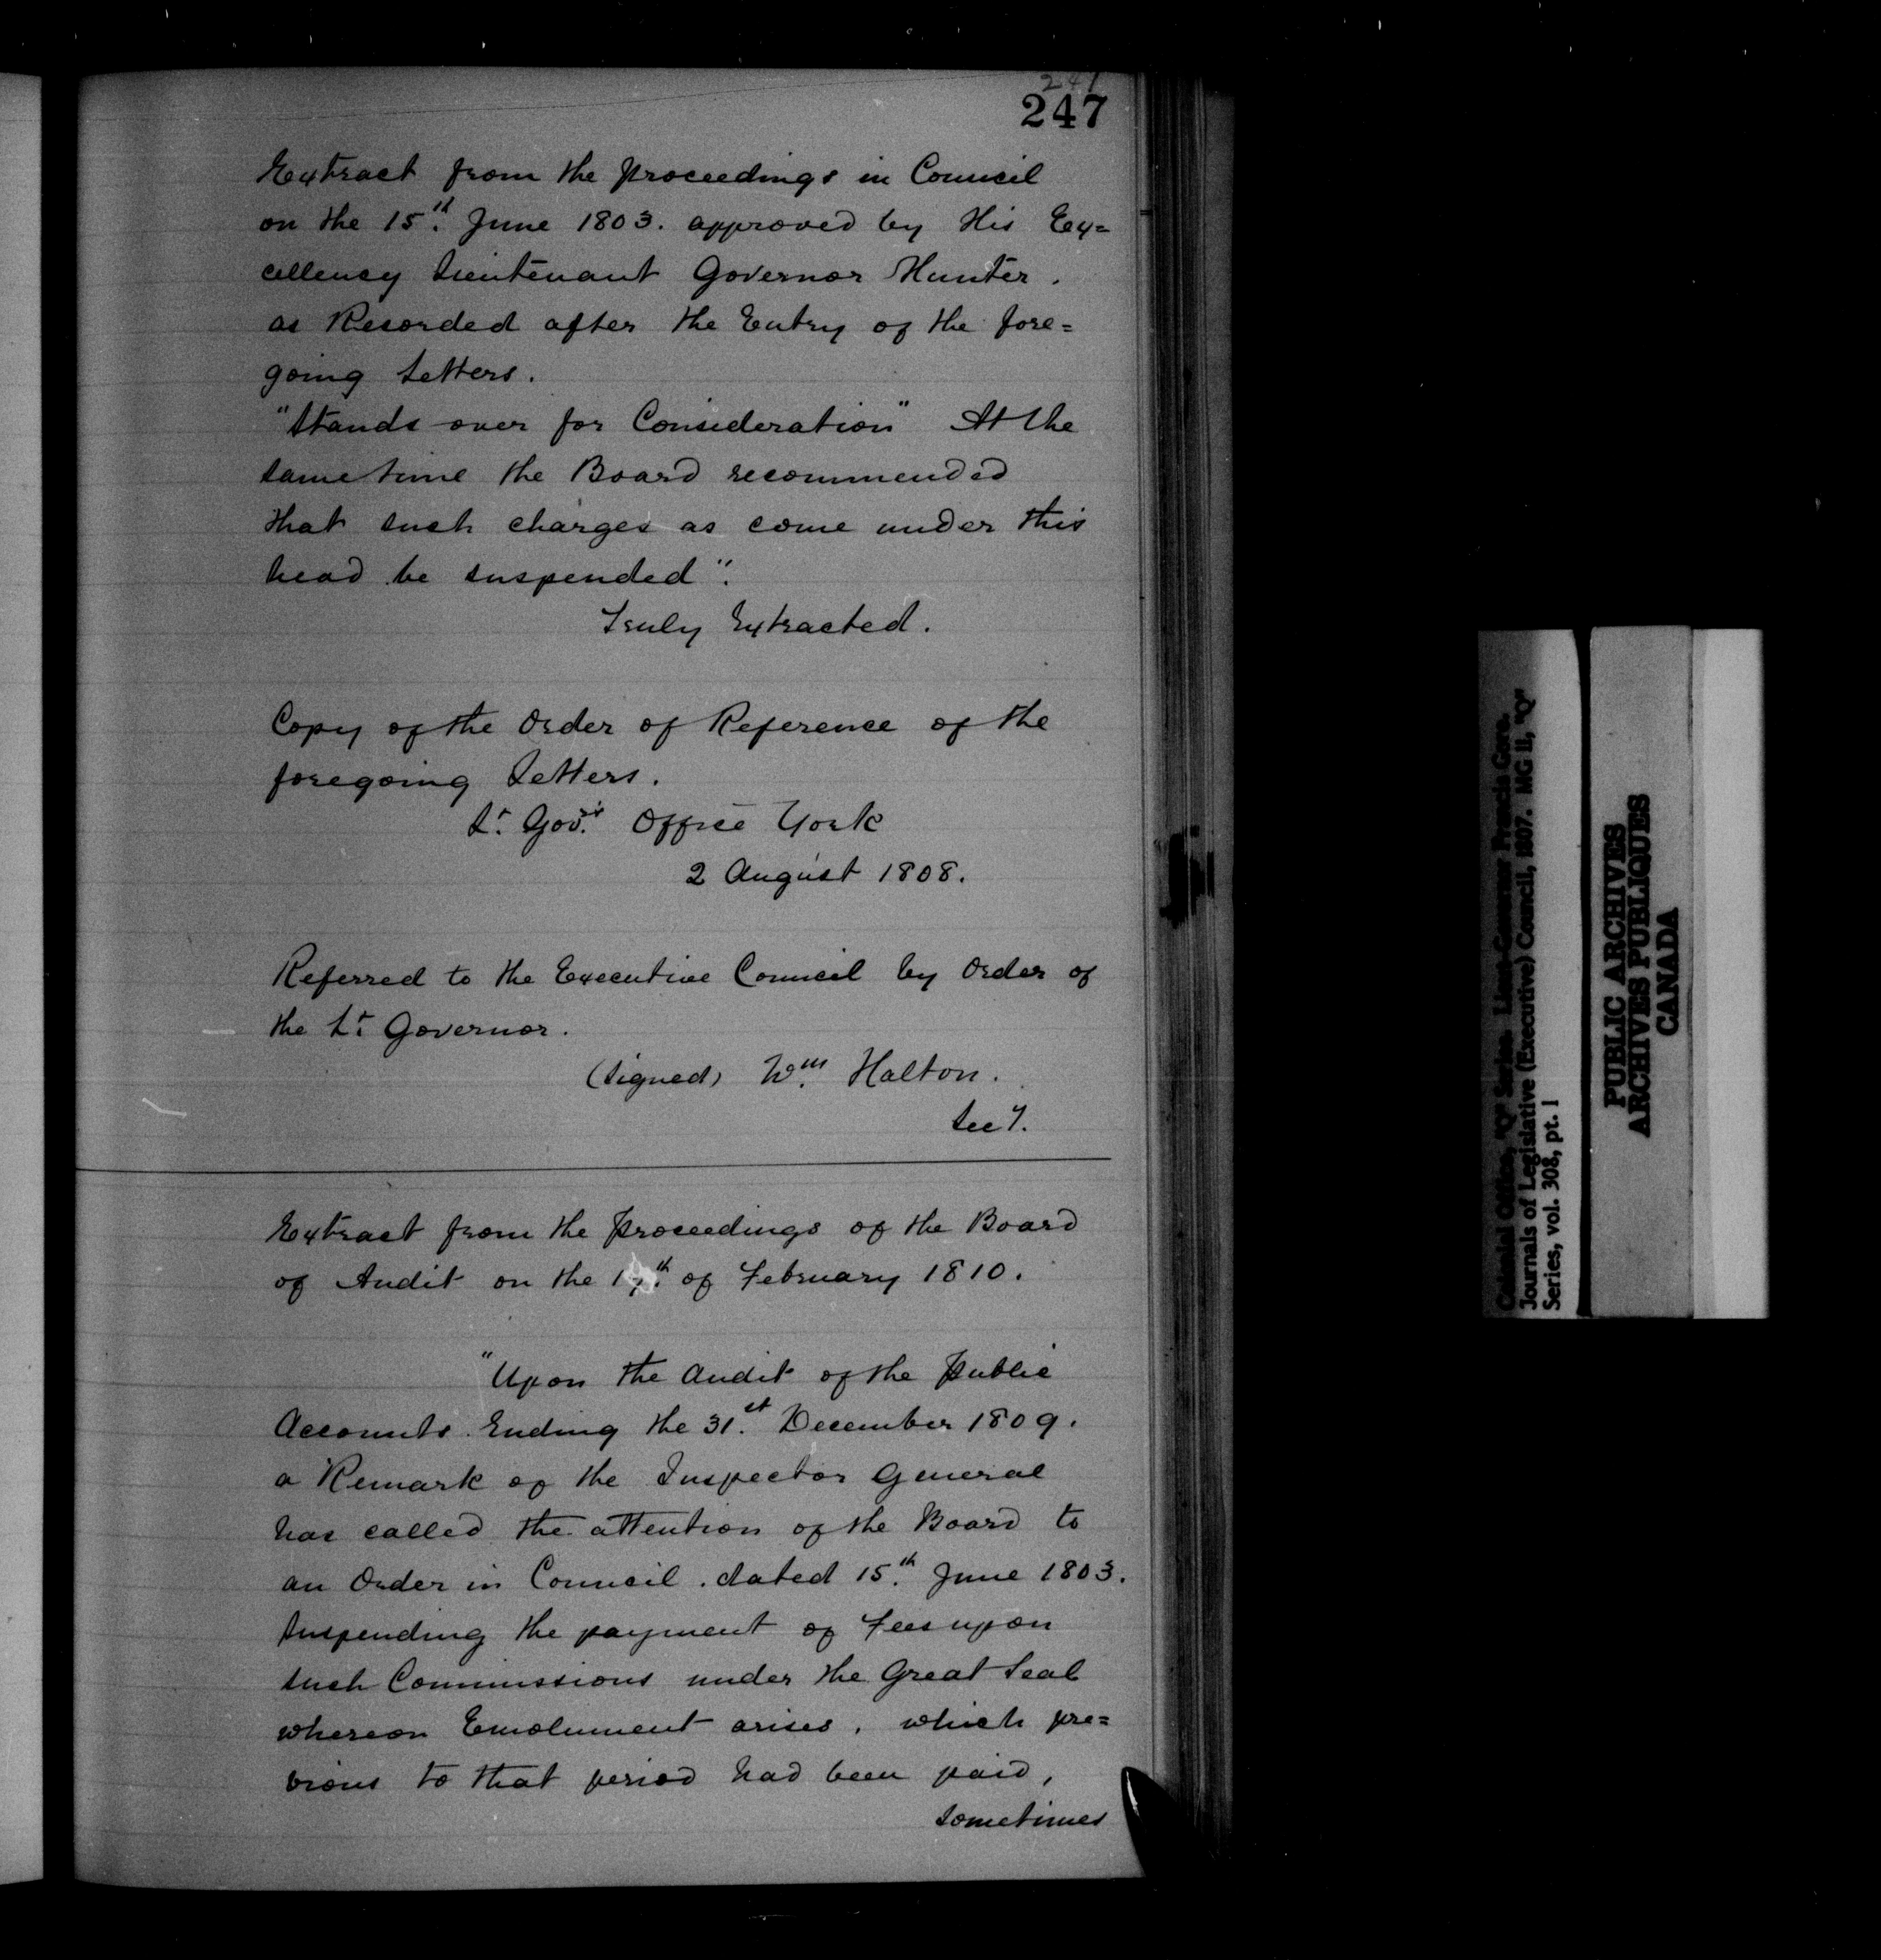 241
247
Extract from the proceedings in Council
on the 15th June 1803. approved by His Ex=
cellency Lieutenant Governor Hunter.
as Recorded after the Entry of the fore=
going Letters.
"Stands over for Consideration" At the
same time the Board recommended
that such charges as come under this
head be suspended".
Truly Extracted.
Copy of the Order of Reference of the
foregoing Letters.
Lt. Govrs. Office York
2 August 1808.
Referred to the Executive Council by Order of
the Lt. Governor.
(Signed) Wm. Halton.
Secy.
Extract from the proceedings of the Board
of Audit on the of February 1810.
"Upon the Audit of the public
Accounts Ending the 31st. December 1809.
a Remark of the Inspector General
has called the attention of the Board to
an Order in Council. dated 15th. June 1803.
Suspending the payment of Fees upon
such Commissions under the Great Seal
whereon Emolument arises, which pre=
vious to that period had been paid,
sometimes
Colonial Office, "Q" Series. Lieut-Governor Francis Gore.
Journals of Legislative (Executive) Council, 1807. MG 11, "Q"
Series, vol. 308, pt. 1
PUBLIC ARCHIVES
ARCHIVES PUBLIQUES
CANADA